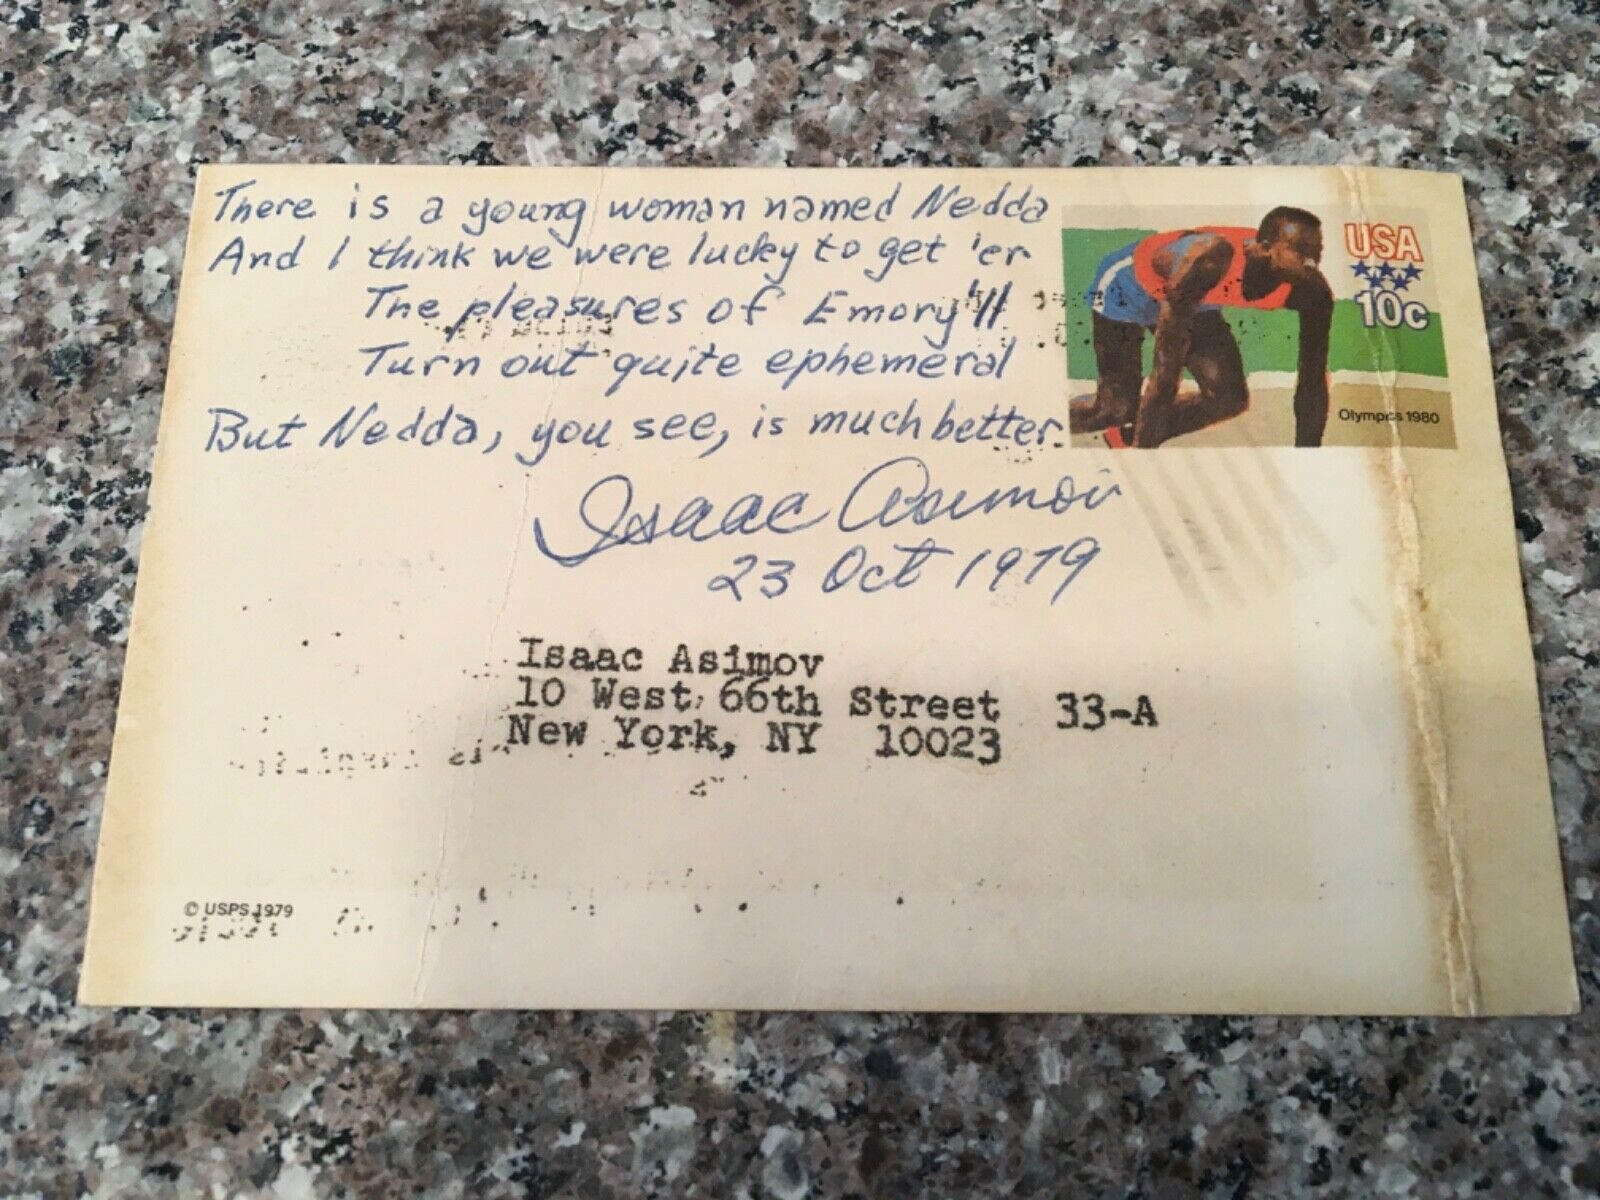 There is a young woman named Nedda
And I think we were lucky to get 'er
The pleasures of Emory'll
Turn out quite ephemeral
But Nedda, you see, is much better.
Isaac Asimov
23 Oct 1979
USA
10c
Olympics 1980
Isaac Asimov
10 West 66th Street 33-A
New York, NY 10023
© USPS 1979